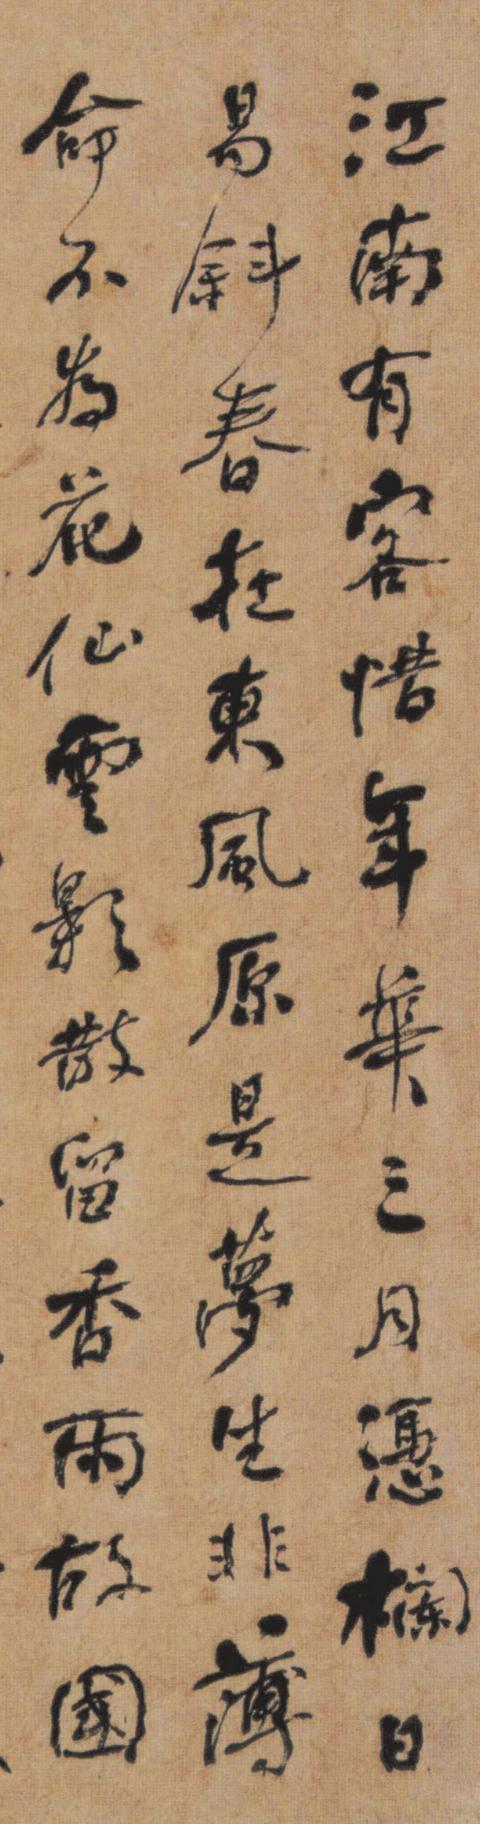 江南有客惜年華三月憑欄日
易斜春在東風原是夢生非薄
命不為花仙雲影散留香雨故國